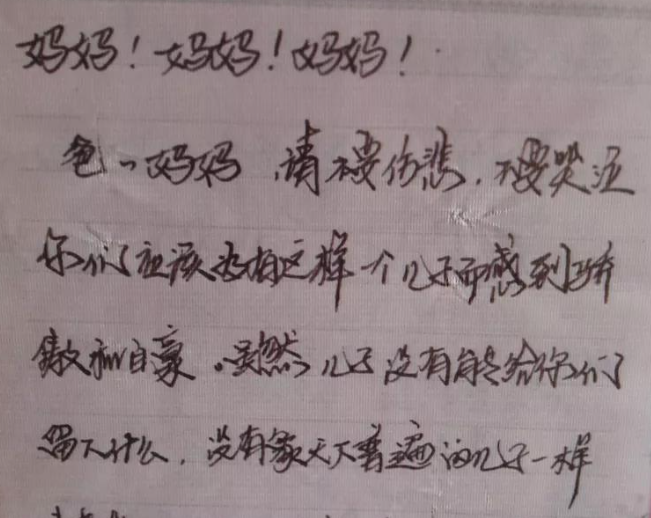 妈妈！妈妈！妈妈！
爸、妈妈，请不要伤悲，不要哭泣
你们应该为有这样一个儿子而感到骄
傲和自豪。虽然儿子没有能给你们
留下什么，没有象天下普遍的儿子一样